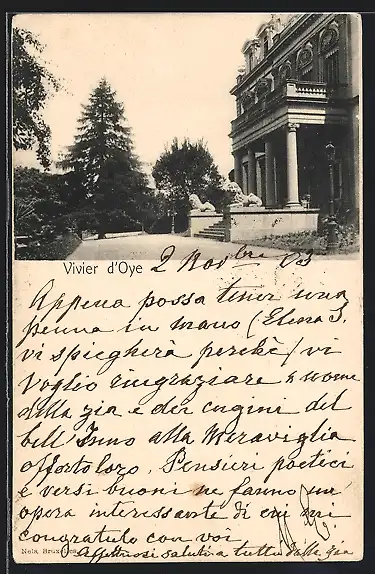 Vivier d'Oye 2 Novbre 03
Appena possa tener una
penna in mano (Elena S.
vi spiegherà perchè) vi
voglio ringraziare a nome
della zia e dei cugini del
bell' Inno alla Meraviglia
offertolozo. Pensieri poetici
e versi buoni ne fanno un'
opera interessante di cui mi
congratulo con voi
Nels, Bruxelles Affettuosi saluti a tutti dalla zia